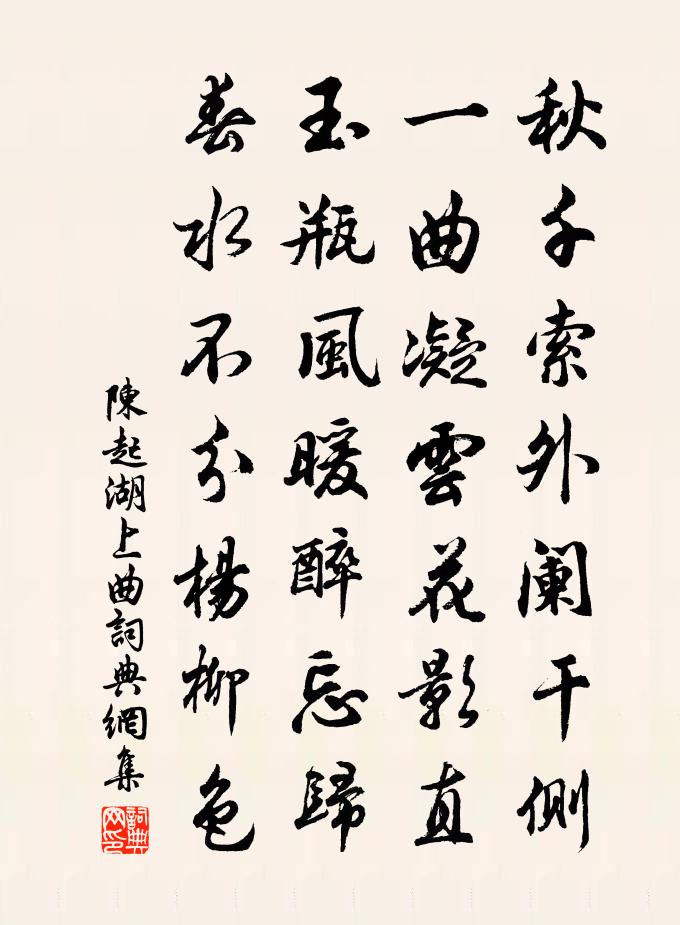 秋千索外阑干側
一曲凝雲花影直
玉瓶風暖醉忘歸
春水不分楊柳色
陳起湖上曲詞典網集
詞典網印